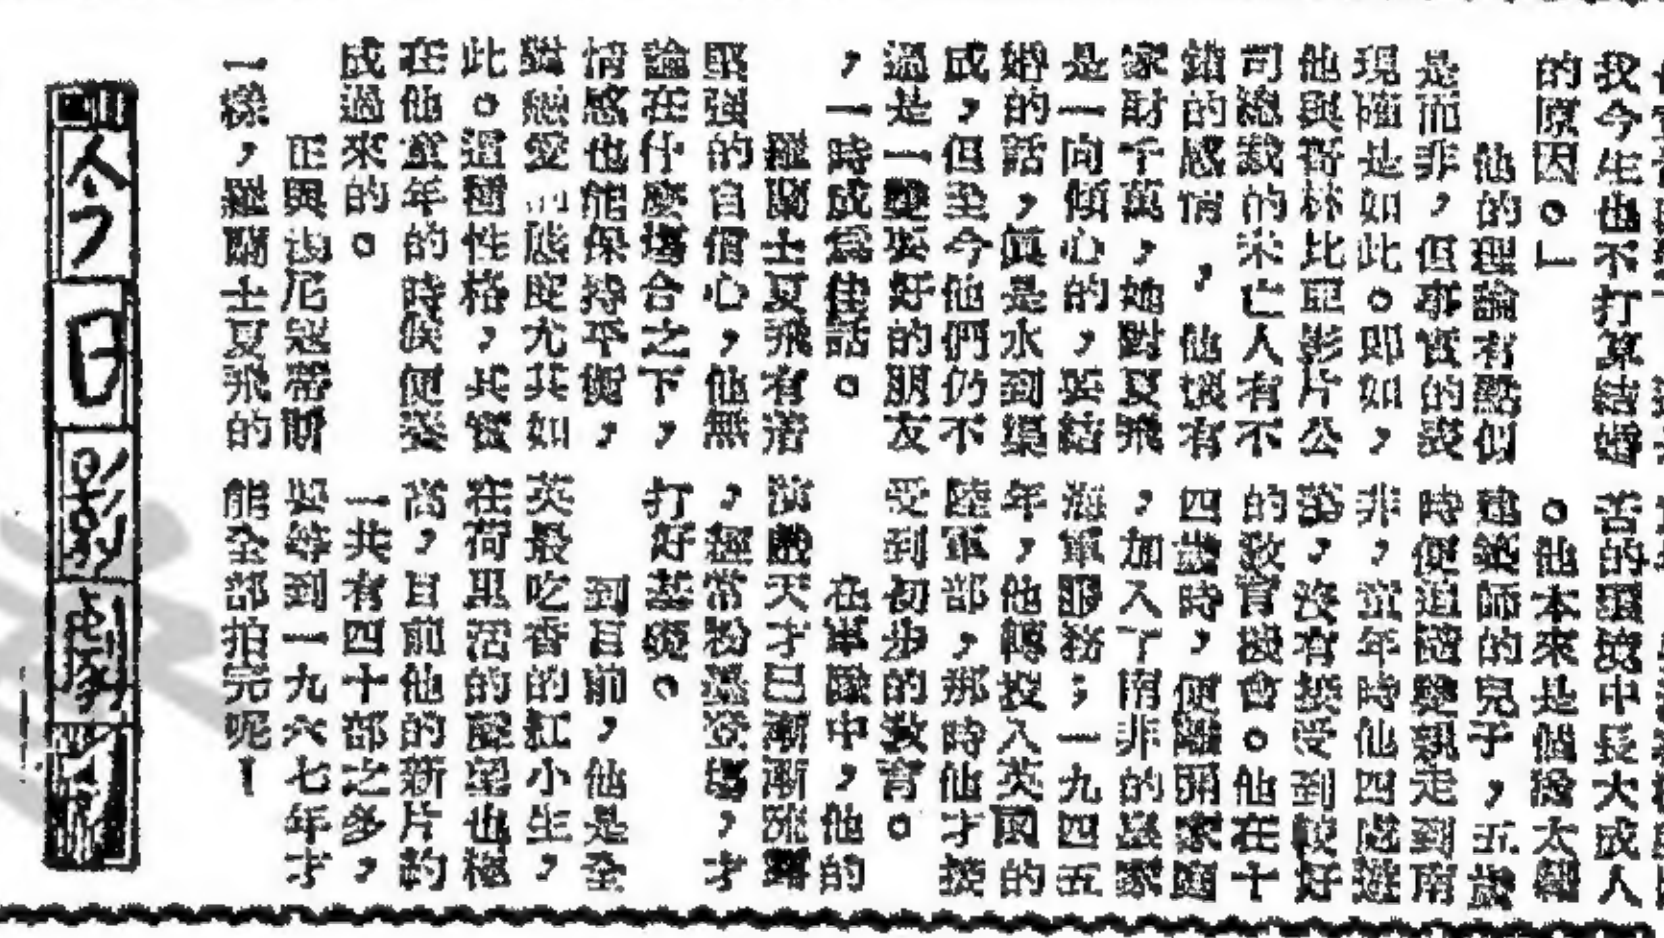 我今生也不打算結婚
的原因。」
他的理論有點似
是而非，但事實的表
現確是如此。即如，
他與哥林比亞影片公
司總裁的未亡人有不
錯的感情，他擁有
家財千萬，她對夏飛
是一向傾心的，要結
婚的話，真是水到渠
成，但至今他們仍不
過是一雙要好的朋友
，一時成為佳話。
羅蘭士夏飛有着
堅強的自信心，他無
論在什麼場合之下，
情感也能保持平衡，
對戀愛的態度尤其如
此。這種性格，其實
在他童年的時候便養
成過來的。
正與尼冠蒂斯
一樣，羅蘭士夏飛的
苦的環境中長大成人
。他本來是個猶太籍
建築師的兒子，五歲
時便追隨雙親走到南
非，童年時他四處遊
蕩，沒有接受到較好
的教育機會。他在十
四歲時，便離開家庭
，加入了南非的皇家
海軍服務；一九四五
年，他轉投入英國的
陸軍部，那時他才接
受到初步的教育。
在軍隊中，他的
演戲天才已漸漸流露
，經常粉墨登場，才
打好基礎。
到目前，他是全
英最吃香的紅小生，
在荷里活的聲望也極
高，目前他的新片約
一共有四十部之多，
要等到一九六七年才
能全部拍完呢！
今日影劇